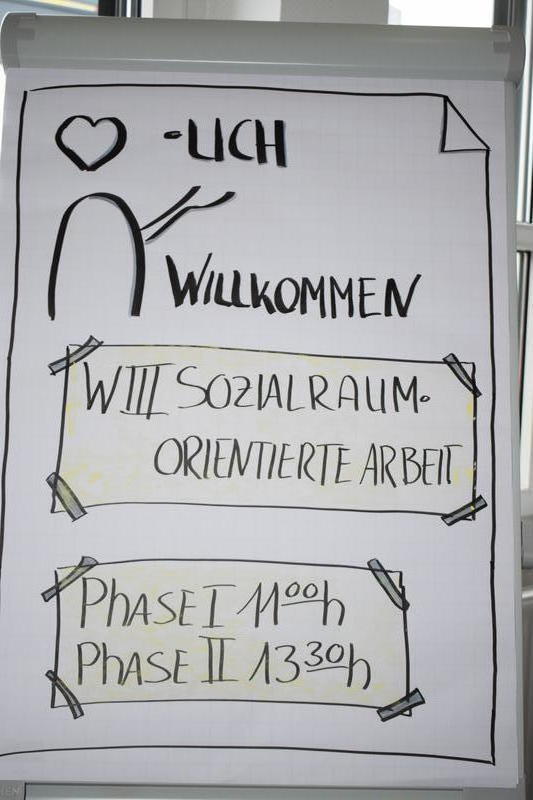 ♡ -LICH
WILLKOMMEN
WIII SOZIALRAUM-
ORIENTIERTE ARBEIT
PHASE I 11⁰⁰h
PHASE II 13³⁰h